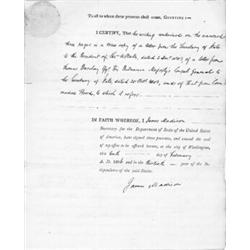 To all to whom these presents shall come, GREETING:
I CERTIFY, That the writing contained on the annexed
three pages is a true copy of a letter from the Secretary of State
to the President of the United States, dated 5 1803; of a letter from
Thomas Barclay Esq. His Britannic Majesty's Consul General to the
Secretary of State, dated 1803, and of that from
to which it refers.
IN FAITH WHEREOF, I James Madison
Secretary for the Department of State of the United States
of America, have signed these presents, and caused the seal
of my office to be affixed hereto, at the city of Washington,
this day of February
A. D. 1806 and in the thirtieth year of the In-
dependence of the said States.
James Madison